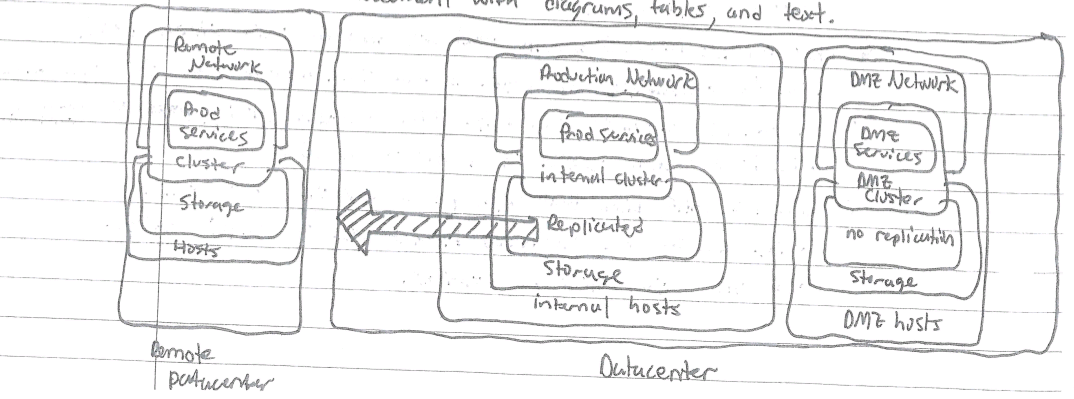 with diagrams, tables, and text.
Remote
Network
Prod
services
Cluster
Storage
Hosts
Remote
Datacenter
Production Network
Prod services
internal cluster
Replicated
Storage
internal hosts
DMZ Network
DMZ
Services
DMZ
Cluster
no replication
Storage
DMZ hosts
Datacenter